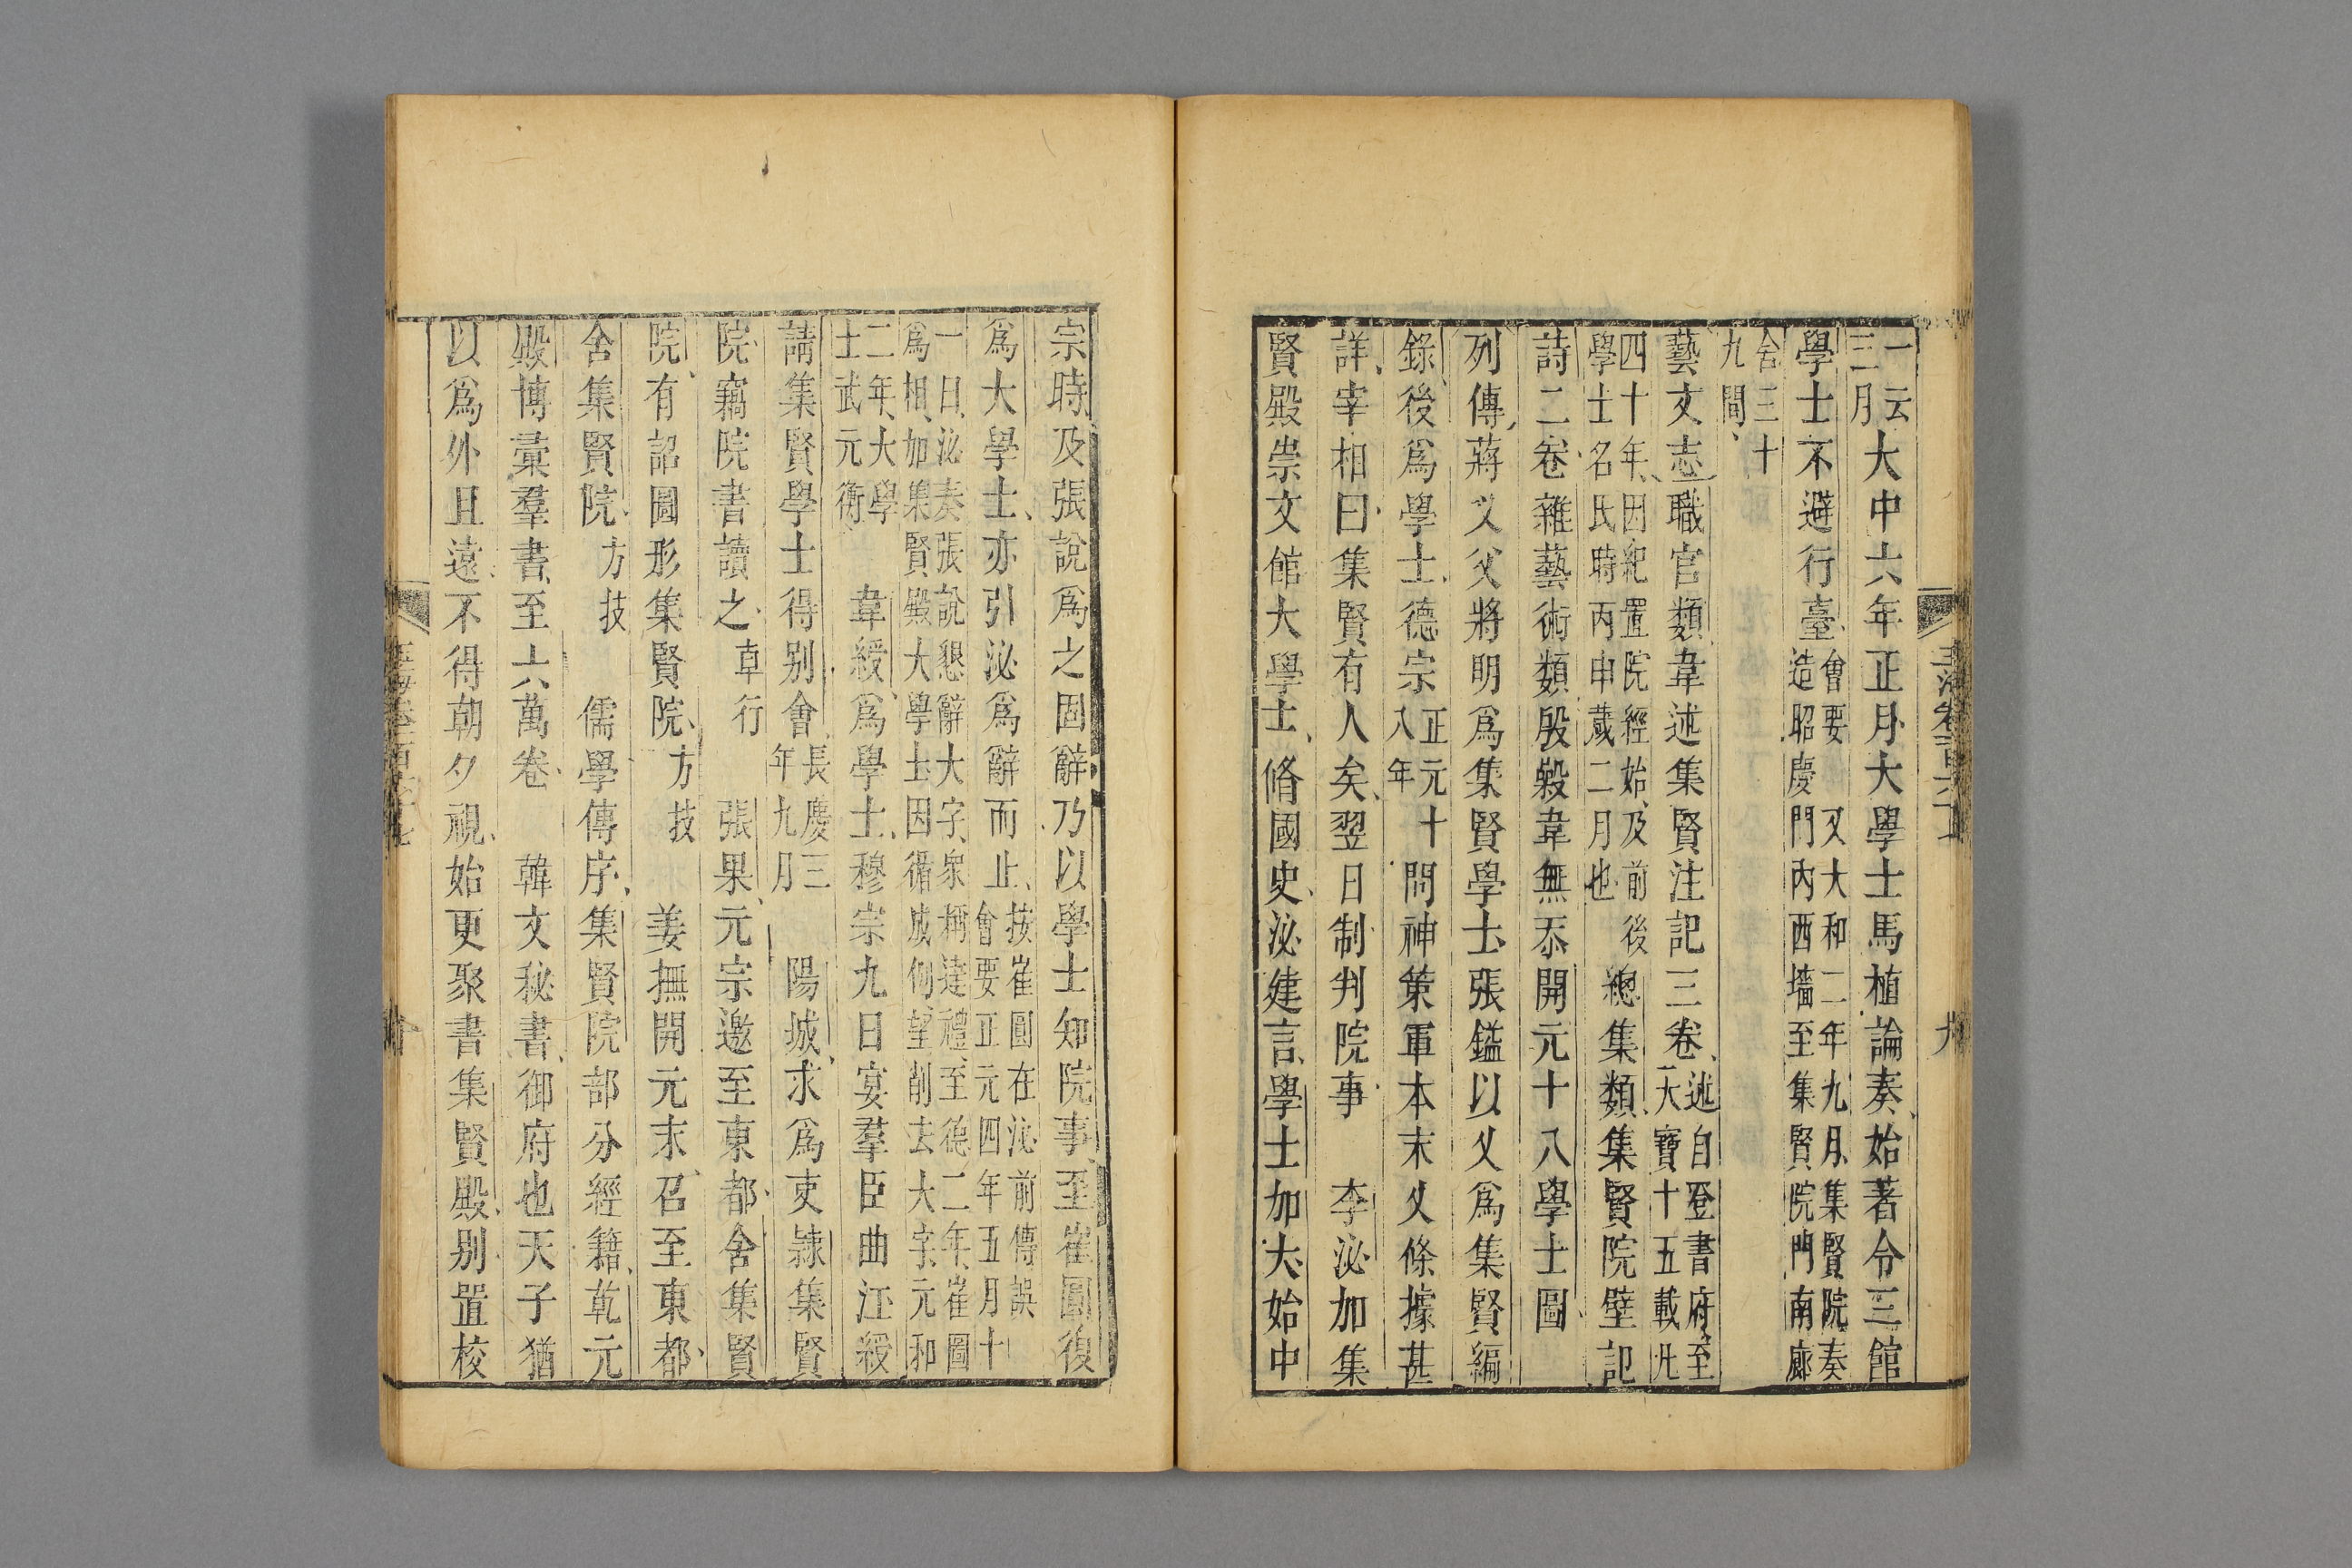 一云三月大中六年正月大學士馬植論奏始著令三館
學士不避行臺會要又大和二年九月集賢院奏造昭慶門內西墻至集賢院門南廊
舍三十九間
藝文志職官類韋述集賢注記三卷述自登書府至天寶十五載凡
四十年因紀置院經始及前後學士名氏時丙申歲二月也總集類集賢院壁記
詩二卷雜藝術類殷㲄韋無忝開元十八學士圖
列傳蔣乂父將明爲集賢學士張鎰以乂爲集賢編
錄後爲學士德宗正元十八年問神策軍本末乂條據甚
詳宰相曰集賢有人矣翌日制判院事 李泌加集
賢殿崇文館大學士脩國史泌建言學士加大始中
宗時及張說爲之固辭乃以學士知院事至崔圓復
爲大學士亦引泌爲辭而止按崔圓在泌前傳誤會要正元四年五月十
一日泌奏張說懇辭大字衆稱達禮至德二年崔圓爲相加集賢殿大學士因循成例望削去大字元和
二年大學士武元衡 韋綬爲學士穆宗九日宴羣臣曲江綬
請集賢學士得别會長慶三年九月 陽城求爲吏隷集賢
院竊院書讀之卓行 張果元宗邀至東都舍集賢
院有詔圖形集賢院方技 姜撫開元末召至東都
舍集賢院方技 儒學傳序集賢院部分經籍乾元
殿博彙羣書至六萬卷 韓文秘書御府也天子猶
以爲外且遠不得朝夕視始更聚書集賢殿别置校